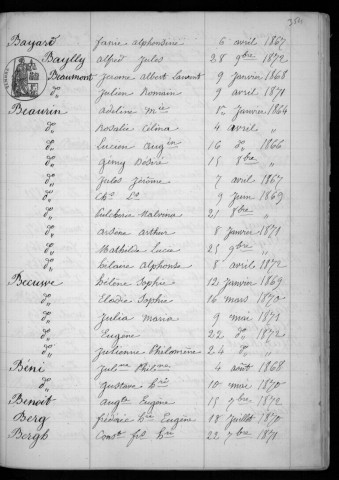 Bayard fanie alphonsine 6 avril 1867
Baylly alfred Jules 28 9bre 1872
Beaumont Jerome albert Laurent 9 Janvier 1868
do Julien Romain 9 avril 1871
Beaurin adeline mie 1er Janvier 1864
do Rosalie Célina 4 avril "
do Lucien augin 16 do 1866
do Gény Désiré 15 8bre "
do Jules Jérôme 7 avril 1867
do 9 Juin 1869
do Pulchérie Malvina 21 8bre "
do arsène arthur 8 Janvier 1871
do Mathilde Lucia 25 9bre "
do Célaire alphonse 8 avril 1872
Beeuwe Hélène Sophie 12 Janvier 1869
do Elodie Sophie 16 mars 1870
do Julia maria 9 mai 1871
do Eugène 22 do 1872
do Julienne Philomène 24 do "
Béni Julne Philne 4 août 1868
do Gustave hri 10 mai 1870
Benoit augte Eugène 15 7bre 1872
Berg frédéric hri Eugène 18 Juillet 1870
Bergh Const fois hri 22 7bre 1871